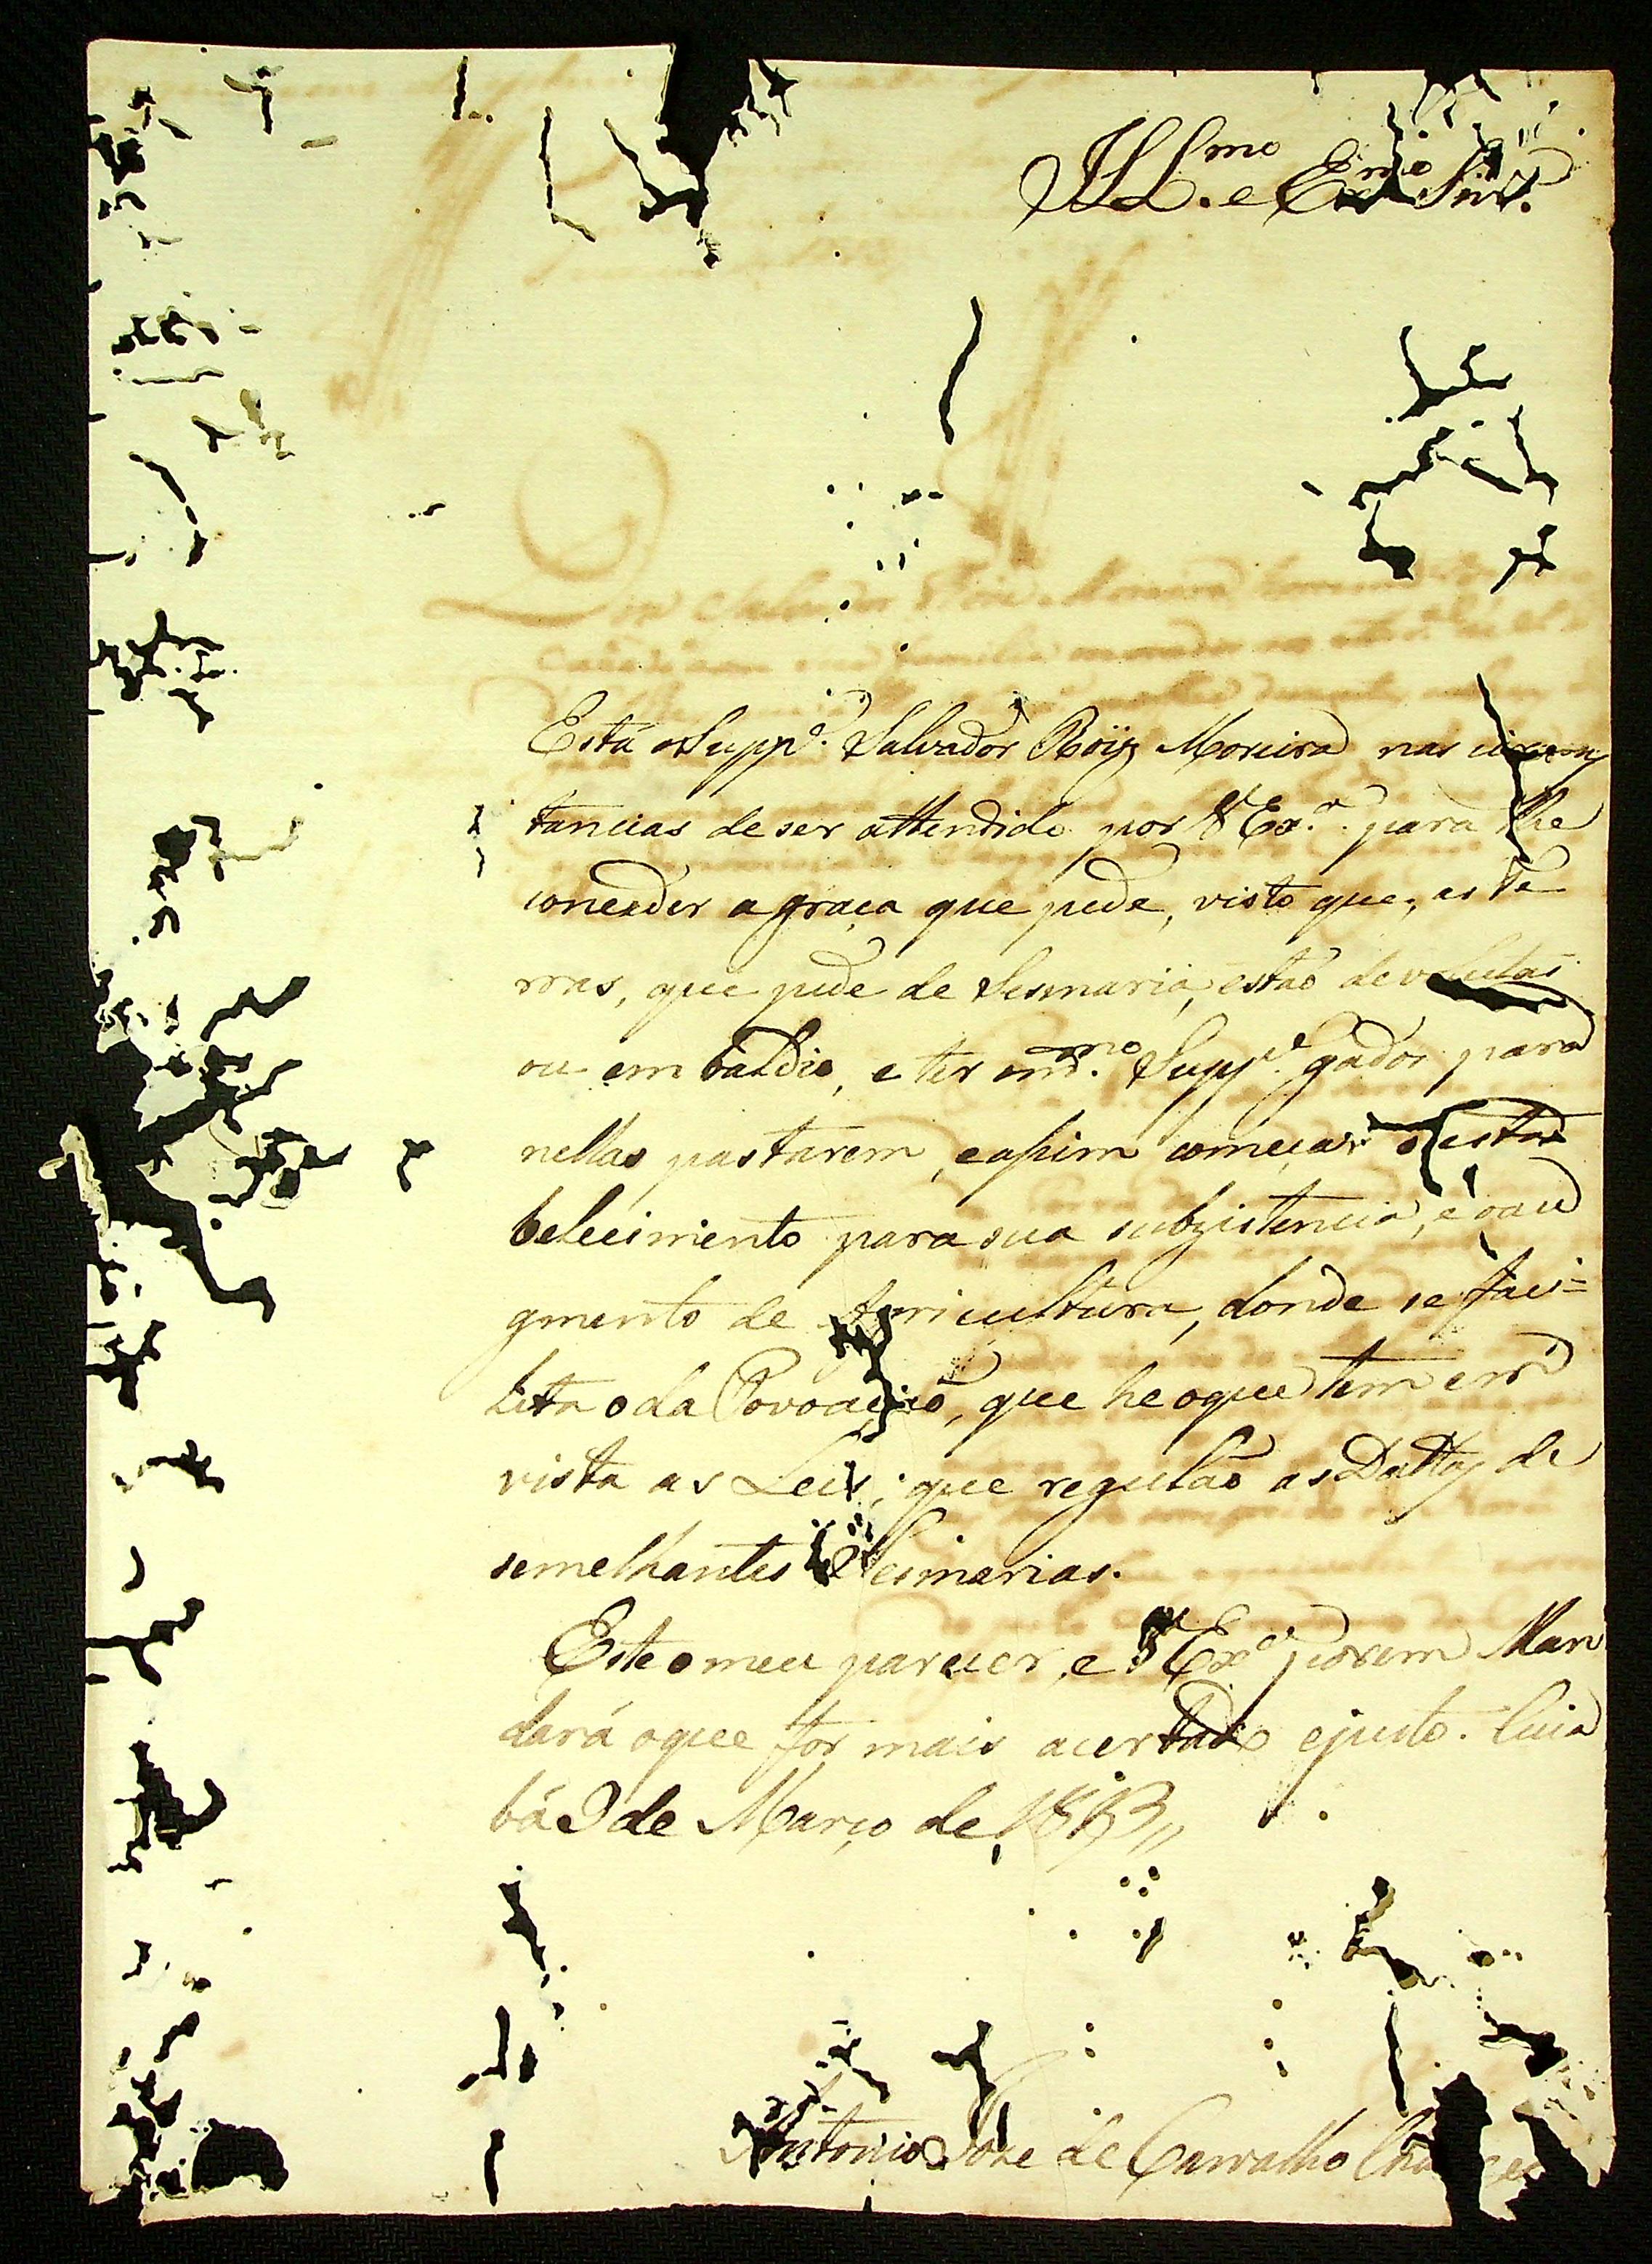 Ill.mo e Ex.mo Snr.
Está o Supp.e Salvador Roiz Moreira nas circuns
tancias de ser attendido por V Ex.a para lhe
conceder a graça que pede, visto que, as te
rras, que pede de Sesmaria, estaõ devolutas
ou em baldio, e ter o m.mo Supp.e gados para
nellas pastarem, e assim começar o esta
belecimento para sua subzistencia, e o au
gmento de Agricultura, donde se faci=
lita o da Povoaçaõ, que he o que tem em
vista as Leis, que regulaõ as Dattas de
semelhantes Sesmarias.
Este o meu parecer, e V Ex.a porem Man
dará o que for mais acertado e justo. Cuia
bá 9 de Março de 1813,,
Antonio Joze de Carvalho